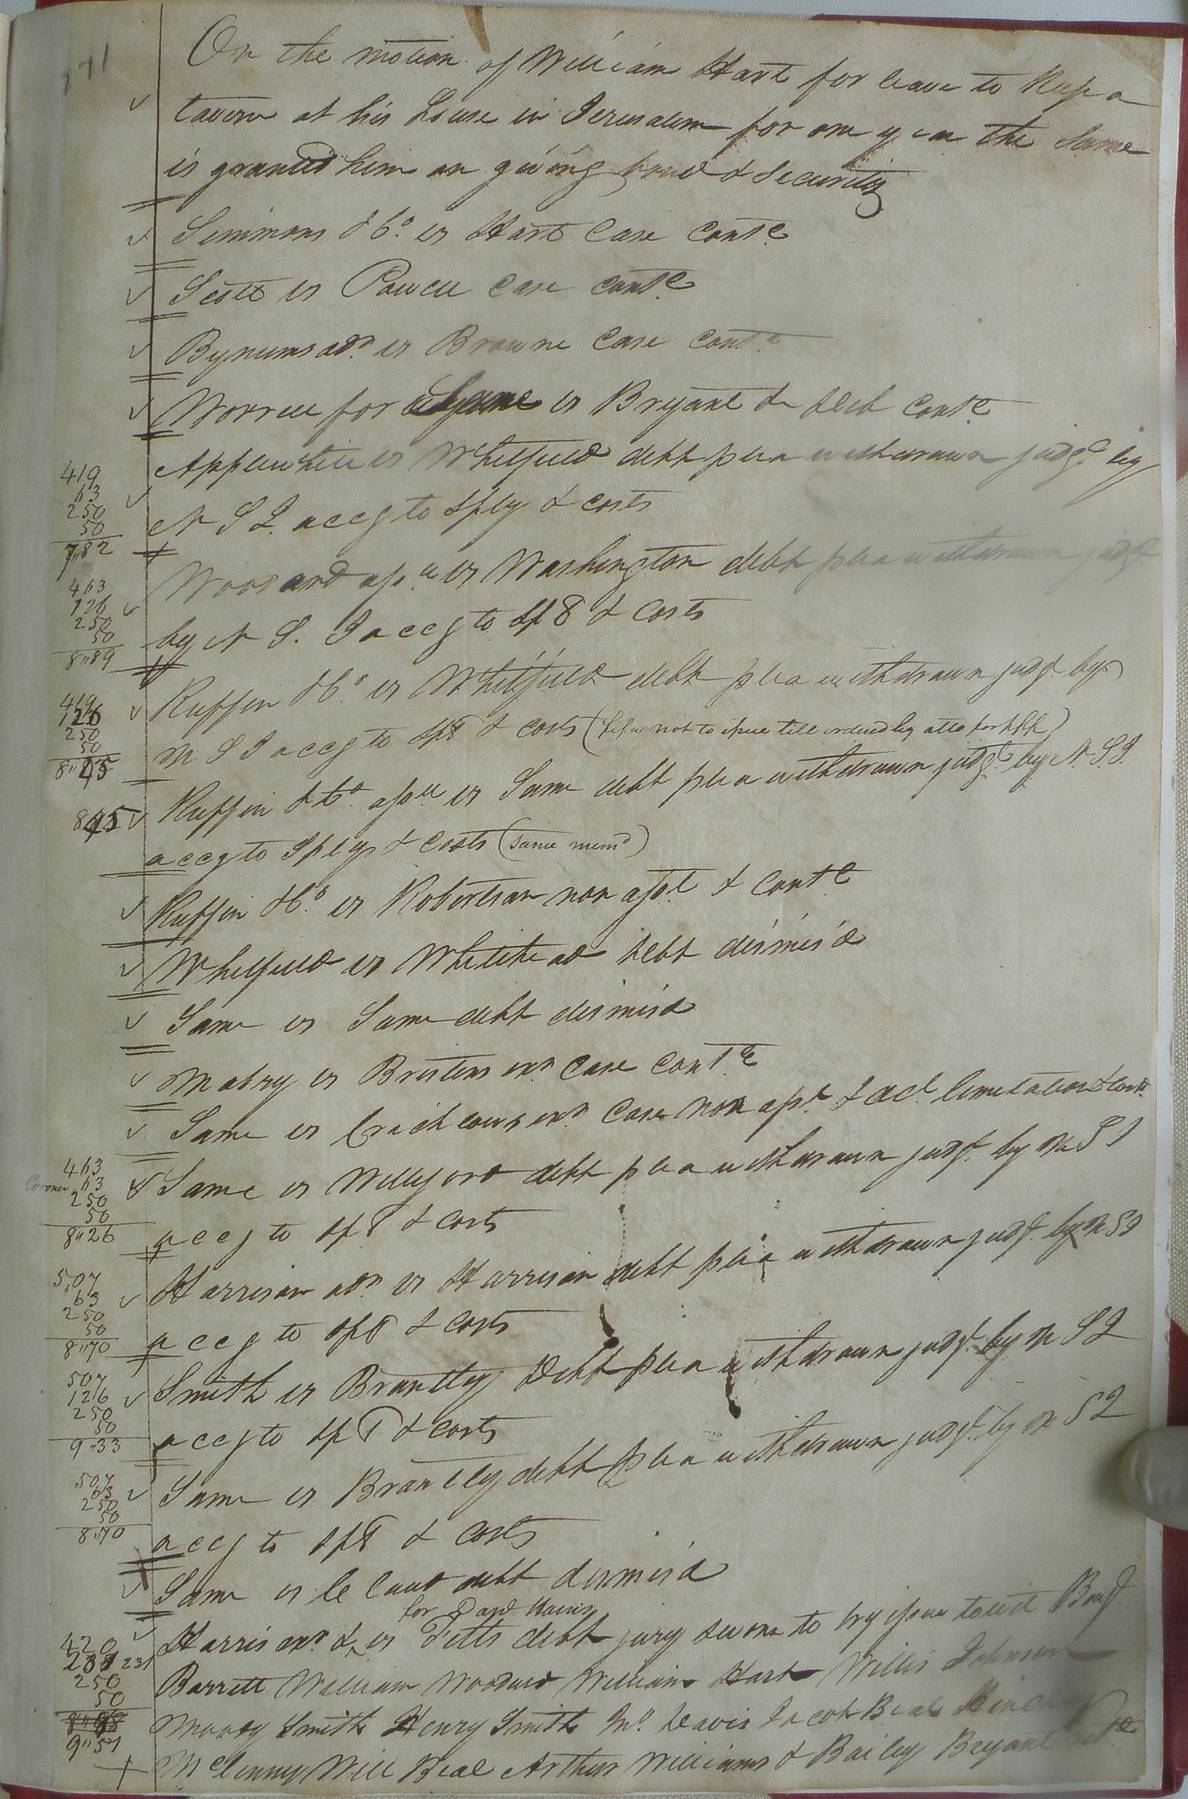 On the motion of William Hart for leave to Keep a
tavern at his house in Jerusalem for one year the same
is granted him on giving bond & security
Simmons & Co. vs Hart Case contd
Scott vs Powell Case contd
Bynums adr vs Browne Case contd
Worrell for vs Bryant & debt contd
419
63
250
50
7"82
Applewhite vs Whitfield debt plea withdrawn judgt by
N S I. accg to sply & costs
463
126
250
50
8"89
Woodard apee vs Washington debt plea withdrawn judgt
by N S. I accg to spl & costs
419
126
250
50
8"45
Ruffin & Co vs Whitfield debt plea withdrawn judgt by
N S I accg to spl & costs ( not to issue till ordered by atto for plf)
845
Ruffin & Co. apee vs Same debt plea withdrawn judgt by N. S. I.
accg to splys & costs (same memo)
Ruffin & Co. vs Robertson non apl & contd
Whitfield vs Whitehead debt dismisd
Same vs Same debt dismisd
Mabry vs Bristers exr Case contd
Same vs exr Case non apt & act limitation & contd
463
Coroner 63
250
50
8"26
Same vs Willyord debt plea withdrawn judgt by N S I
accg to spl & costs
507
63
250
50
8"70
Harrison adr vs Harrison debt plea withdrawn judgt by N S I
accg to spl & costs
507
126
250
50
9"33
Smith vs Brantley Debt plea withdrawn judgt by N S I
accg to spl & costs
507
63
250
50
8"70
Same vs Brantley debt plea withdrawn judgt by N S I
accg to spl & costs
Same vs debt dismisd
for
420
231
250
50
9"51
Harris exr & vs Pitts debt jury sworn to try issue towit Benj
Barrett William Woodard William Hart Willis Johnson
Moody Smith Henry Smith Jno. Davis Jacob Beal
McLenny Will Beal Arthur Williams & Bailey Bryant